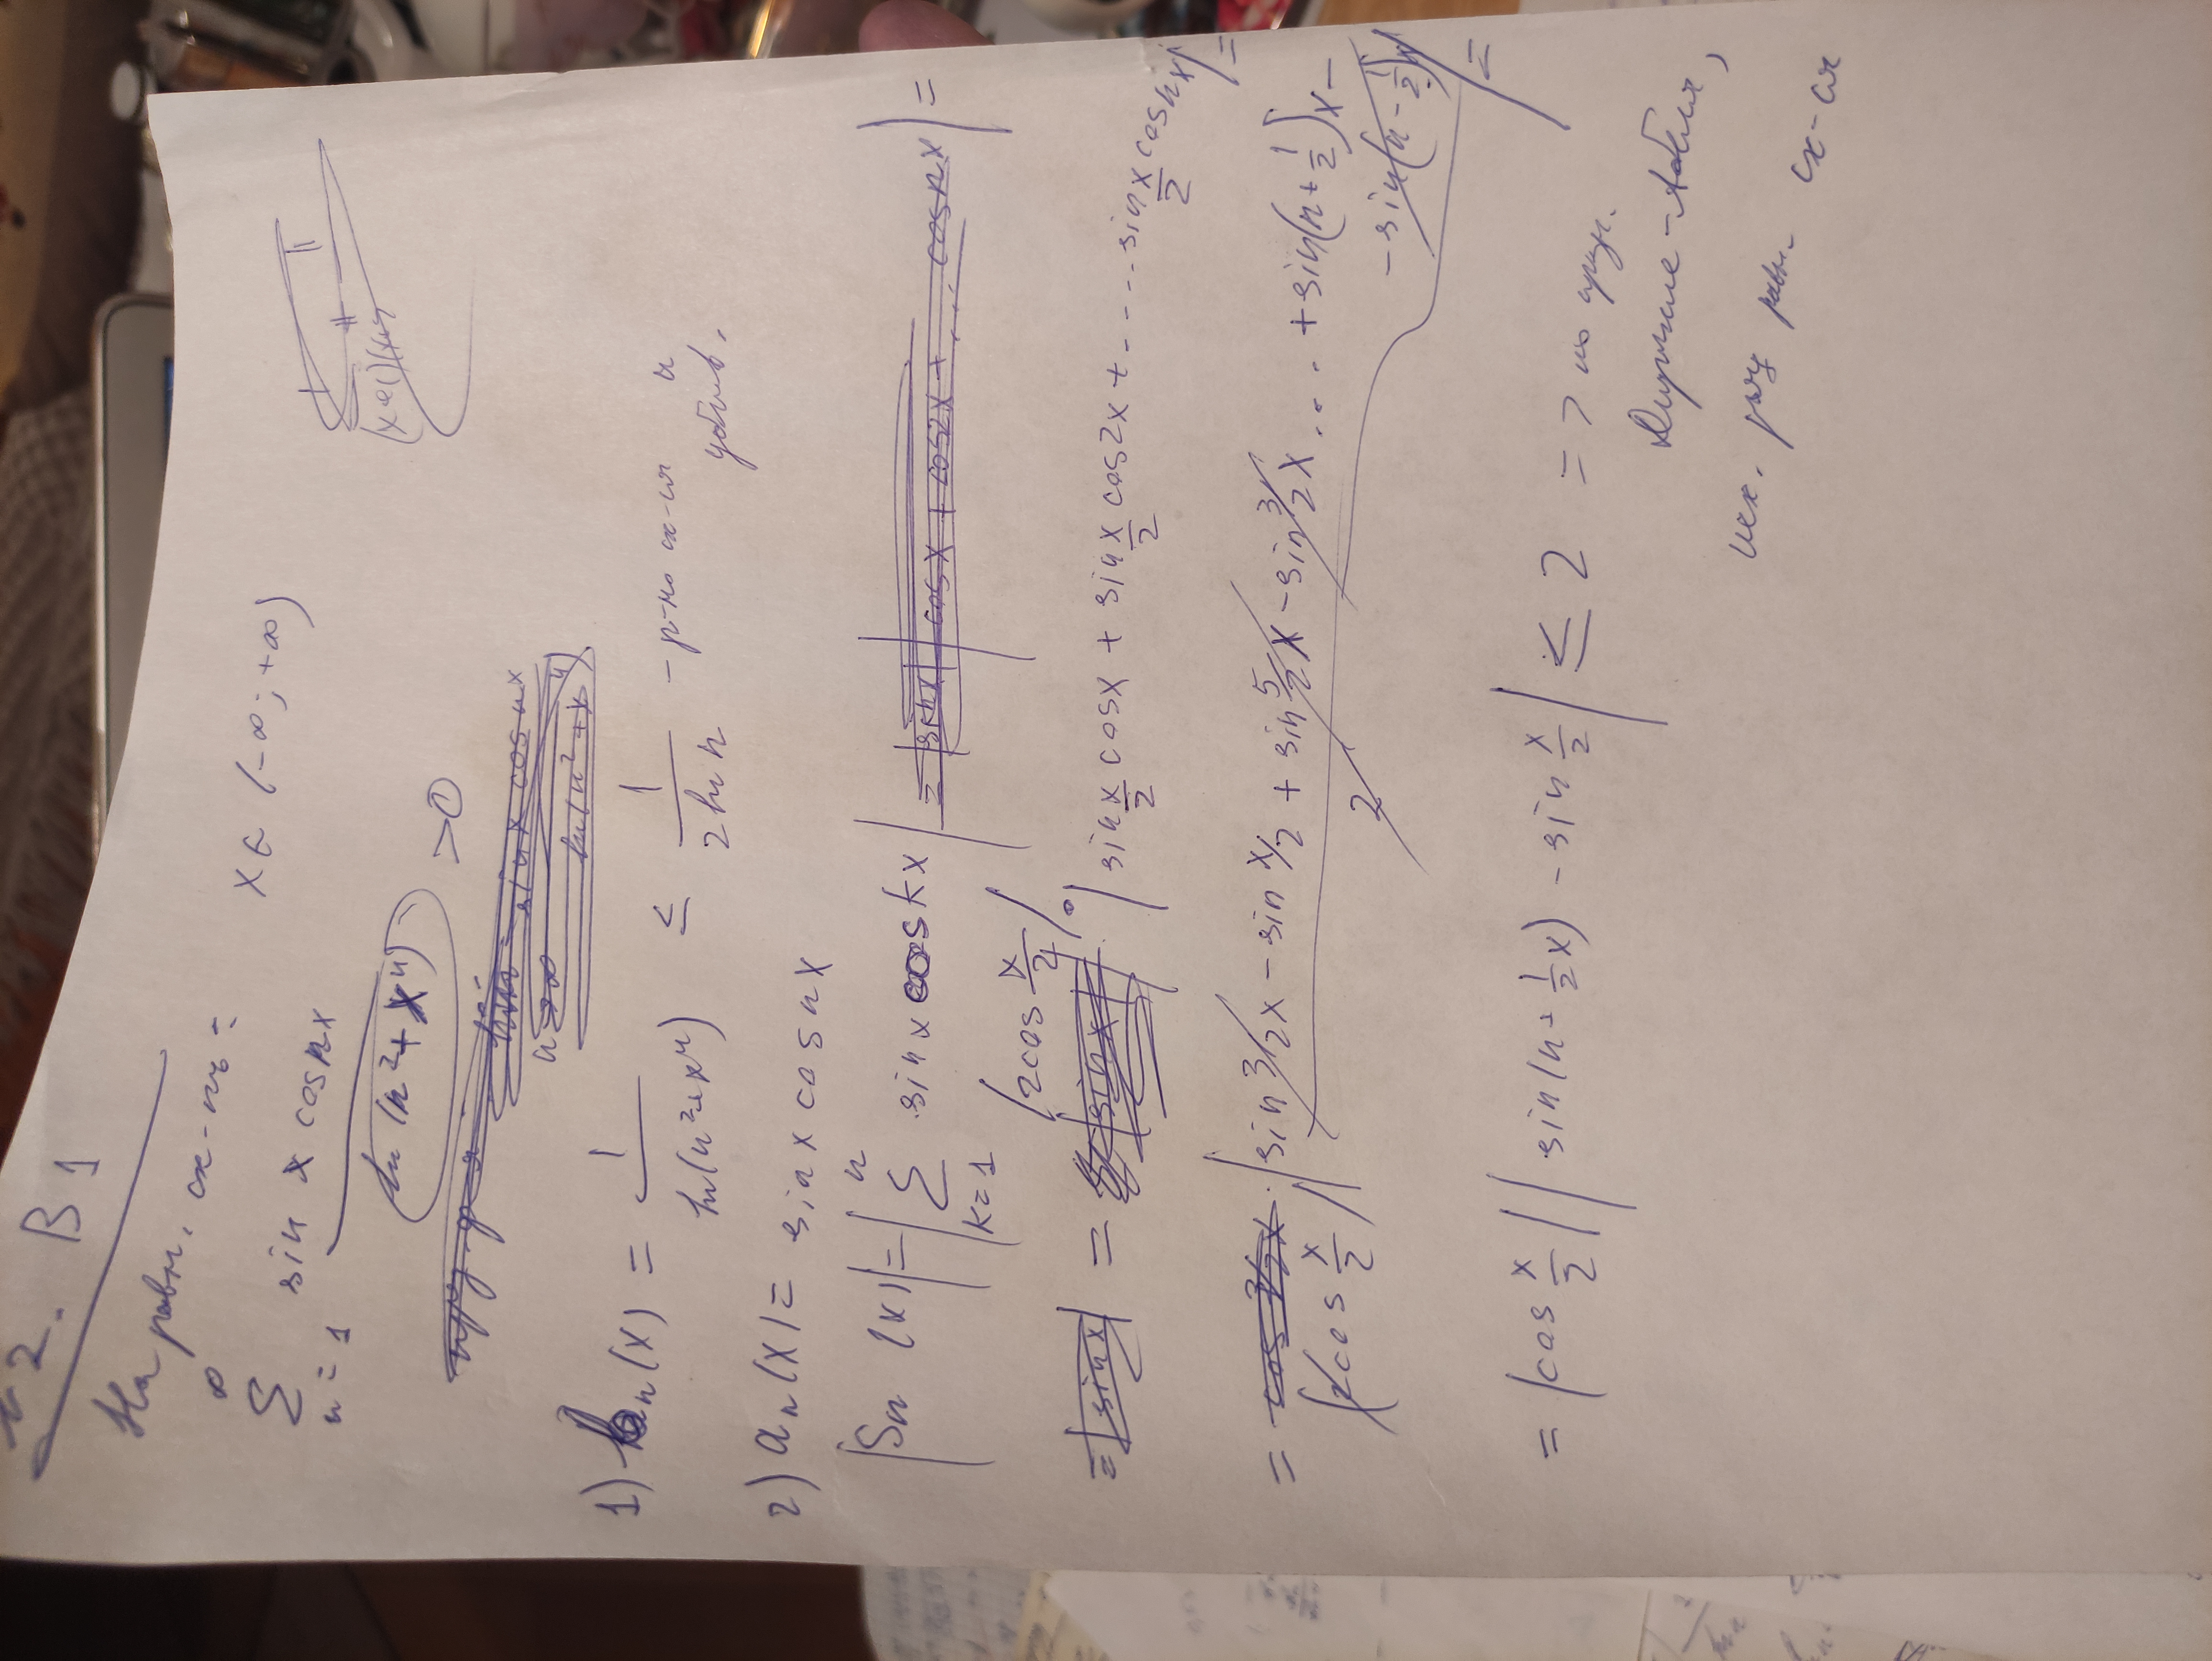 №2. В1
На равн. сх-ть:
∞
∑ sin x cos nx x ∈ (-∞; +∞)
n=1 ln(n²+x⁴) >0
1) bₙ(x) = 1/ln(n²+x⁴) ≤ 1/(2 ln n) - р-но сх-ся и
убыв.
2) aₙ(x) = sin x cos nx
|Sₙ(x)| = |∑ₖ₌₁ⁿ sin x cos kx| =
= |2cos x/2| · |sin x/2 cos x + sin x/2 cos 2x + .... sin x/2 cos nx| =
= |cos x/2| |sin 3/2 x - sin x/2 + sin 5/2 x - sin 3/2 x ... + sin(n+1/2)x -
- sin(n-1/2)x| =
= |cos x/2| |sin(n+1/2 x) - sin x/2| ≤ 2 => по
Дирихле-Абеля,
исх. ряд равн. сх-ся